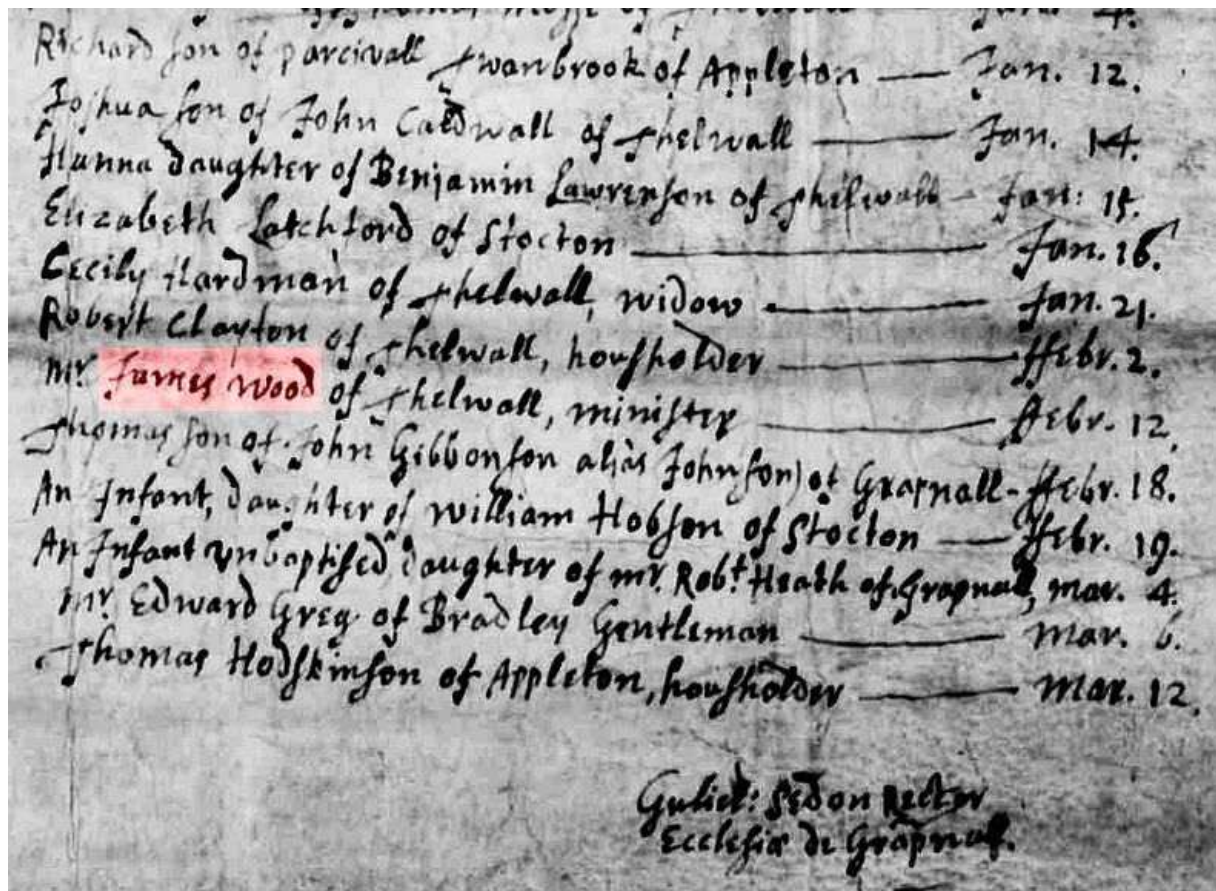 Richard son of Parcivall Swanbrook of Appleton — Jan. 12.
Joshua son of John Caldwall of Thelwall — Jan. 14.
Hanna daughter of Benjamin Lawrenson of Thelwall – Jan: 15.
Elizabeth Latchford of Stocton — Jan. 16.
Cecily Hardman of Thelwall, widow — Jan. 21.
Robert Clayton of Thelwall, housholder — ffebr. 2.
Mr. James Wood of Thelwall, minister — ffebr. 12.
Thomas son of John Gibbonson alias Johnson) of Grapnall - ffebr. 18.
An Infant, daughter of William Hobson of Stocton — ffebr. 19.
An Infant unbaptised daughter of mr. Robt. Heath of Grapnall, mar. 4.
Mr. Edward Greg of Bradley Gentleman — Mar. 6.
Thomas Hodskinson of Appleton, housholder — Mar. 12.
Guliel: Sedon Rector
Ecclesiæ de Grapnall.